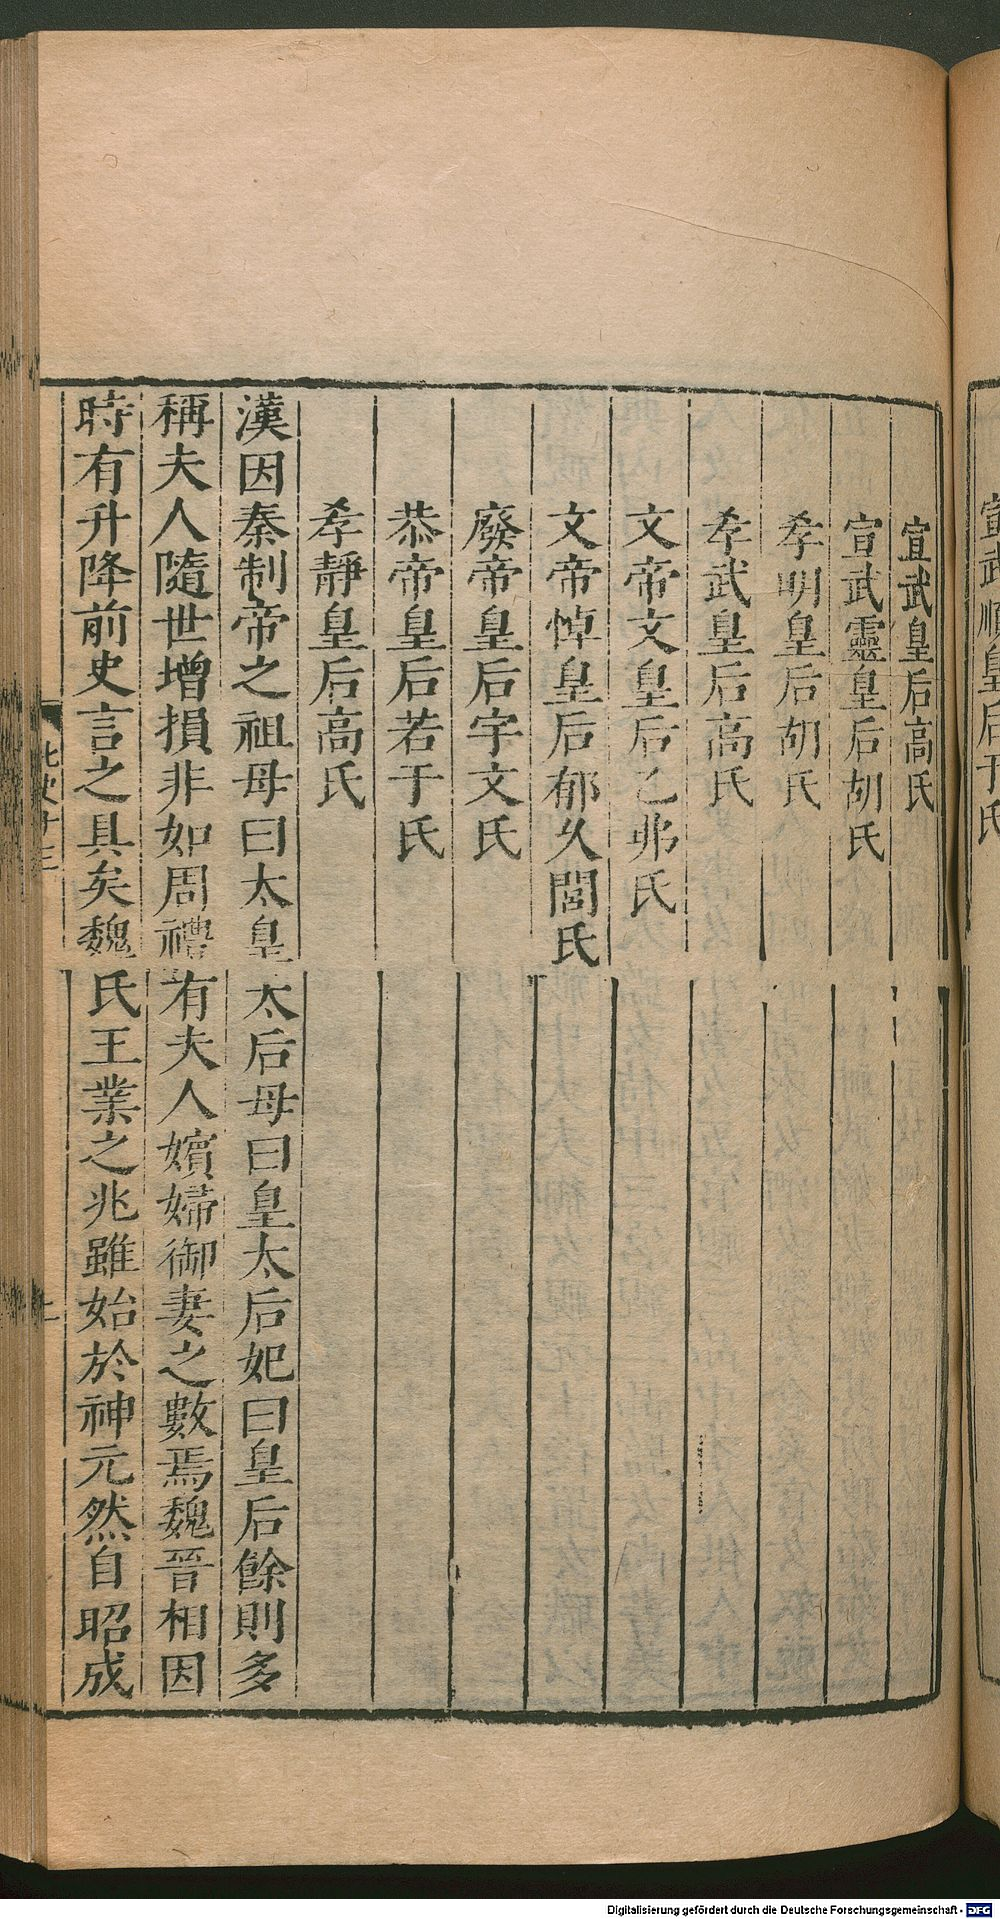 宣武順皇后于氏
宣武皇后高氏
宣武靈皇后胡氏
孝明皇后胡氏
孝武皇后高氏
文帝文皇后乙弗氏
文帝悼皇后郁久閭氏
廢帝皇后宇文氏
恭帝皇后若干氏
孝靜皇后高氏
漢因秦制帝之祖母曰太皇太后母曰皇太后妃曰皇后餘則多
稱夫人隨世增損非如周禮有夫人嬪婦御妻之數焉魏晉相因
時有升降前史言之具矣魏氏王業之兆雖始於神元然自昭成
北史十三
Digitalisierung gefördert durch die Deutsche Forschungsgemeinschaft - DFG